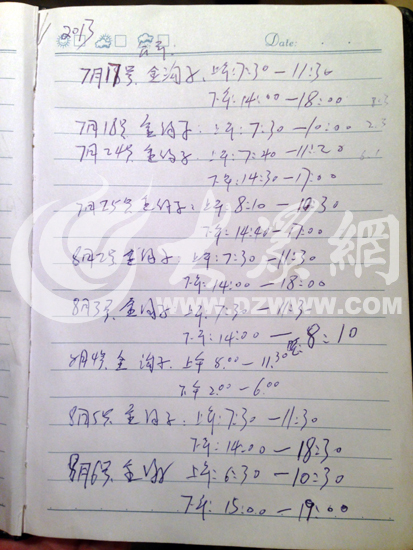 2013
Date:
7月17号 金沟子 上午:7:30—11:30
下午:14:00—18:00
7月18号 金沟子: 上午:7:30—10:00
7月24号 金沟子: 上午:7:40—11:20
下午:14:30—17:00
7月25号 金沟子: 上午 8:10—
下午:14:40—17:00
8月2号 金沟子: 上午:7:30—11:30
下午:14:00—18:00
8月3号 金沟子: 上午:7:30—11:30
下午:14:00—晚8:10
8月4号 金沟子 上午 8:00—11:30
下午 2:00—6:00
8月5号 金沟子: 上午:7:30—11:30
下午:14:00—18:30
8月6号 金沟子 上午:6:30—10:30
下午:15:00—19:00
大眾網
WWW.DZWWW.COM